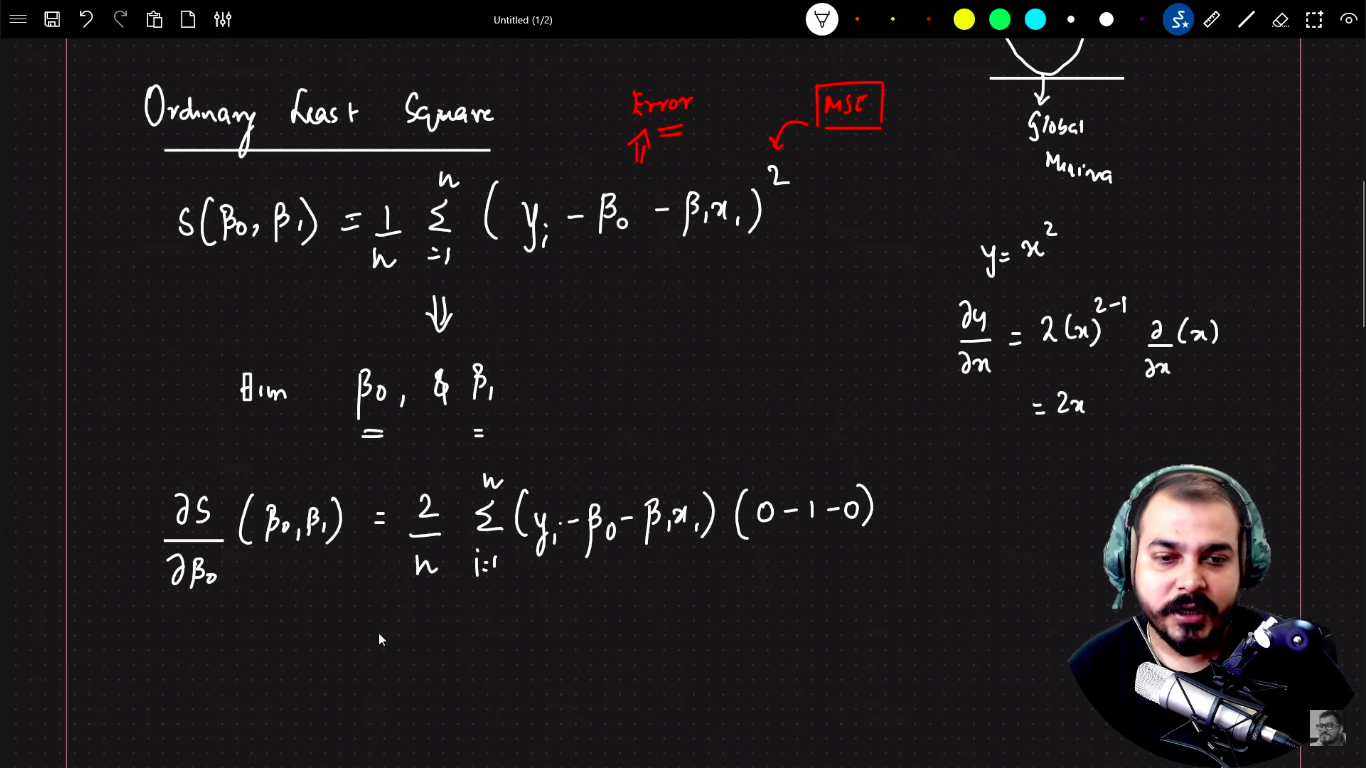 Untitled (1/2)
Ordinary Least Square
Error
MSE
S(β₀, β₁) = 1/n Σ i=1 n (yᵢ − β₀ − β₁xᵢ)²
Aim β₀, & β₁
∂S/∂β₀ (β₀, β₁) = 2/n Σ i=1 n (yᵢ − β₀ − β₁xᵢ) (0 − 1 − 0)
Global
Minima
y = x²
∂y/∂x = 2(x)²⁻¹ ∂/∂x (x)
= 2x